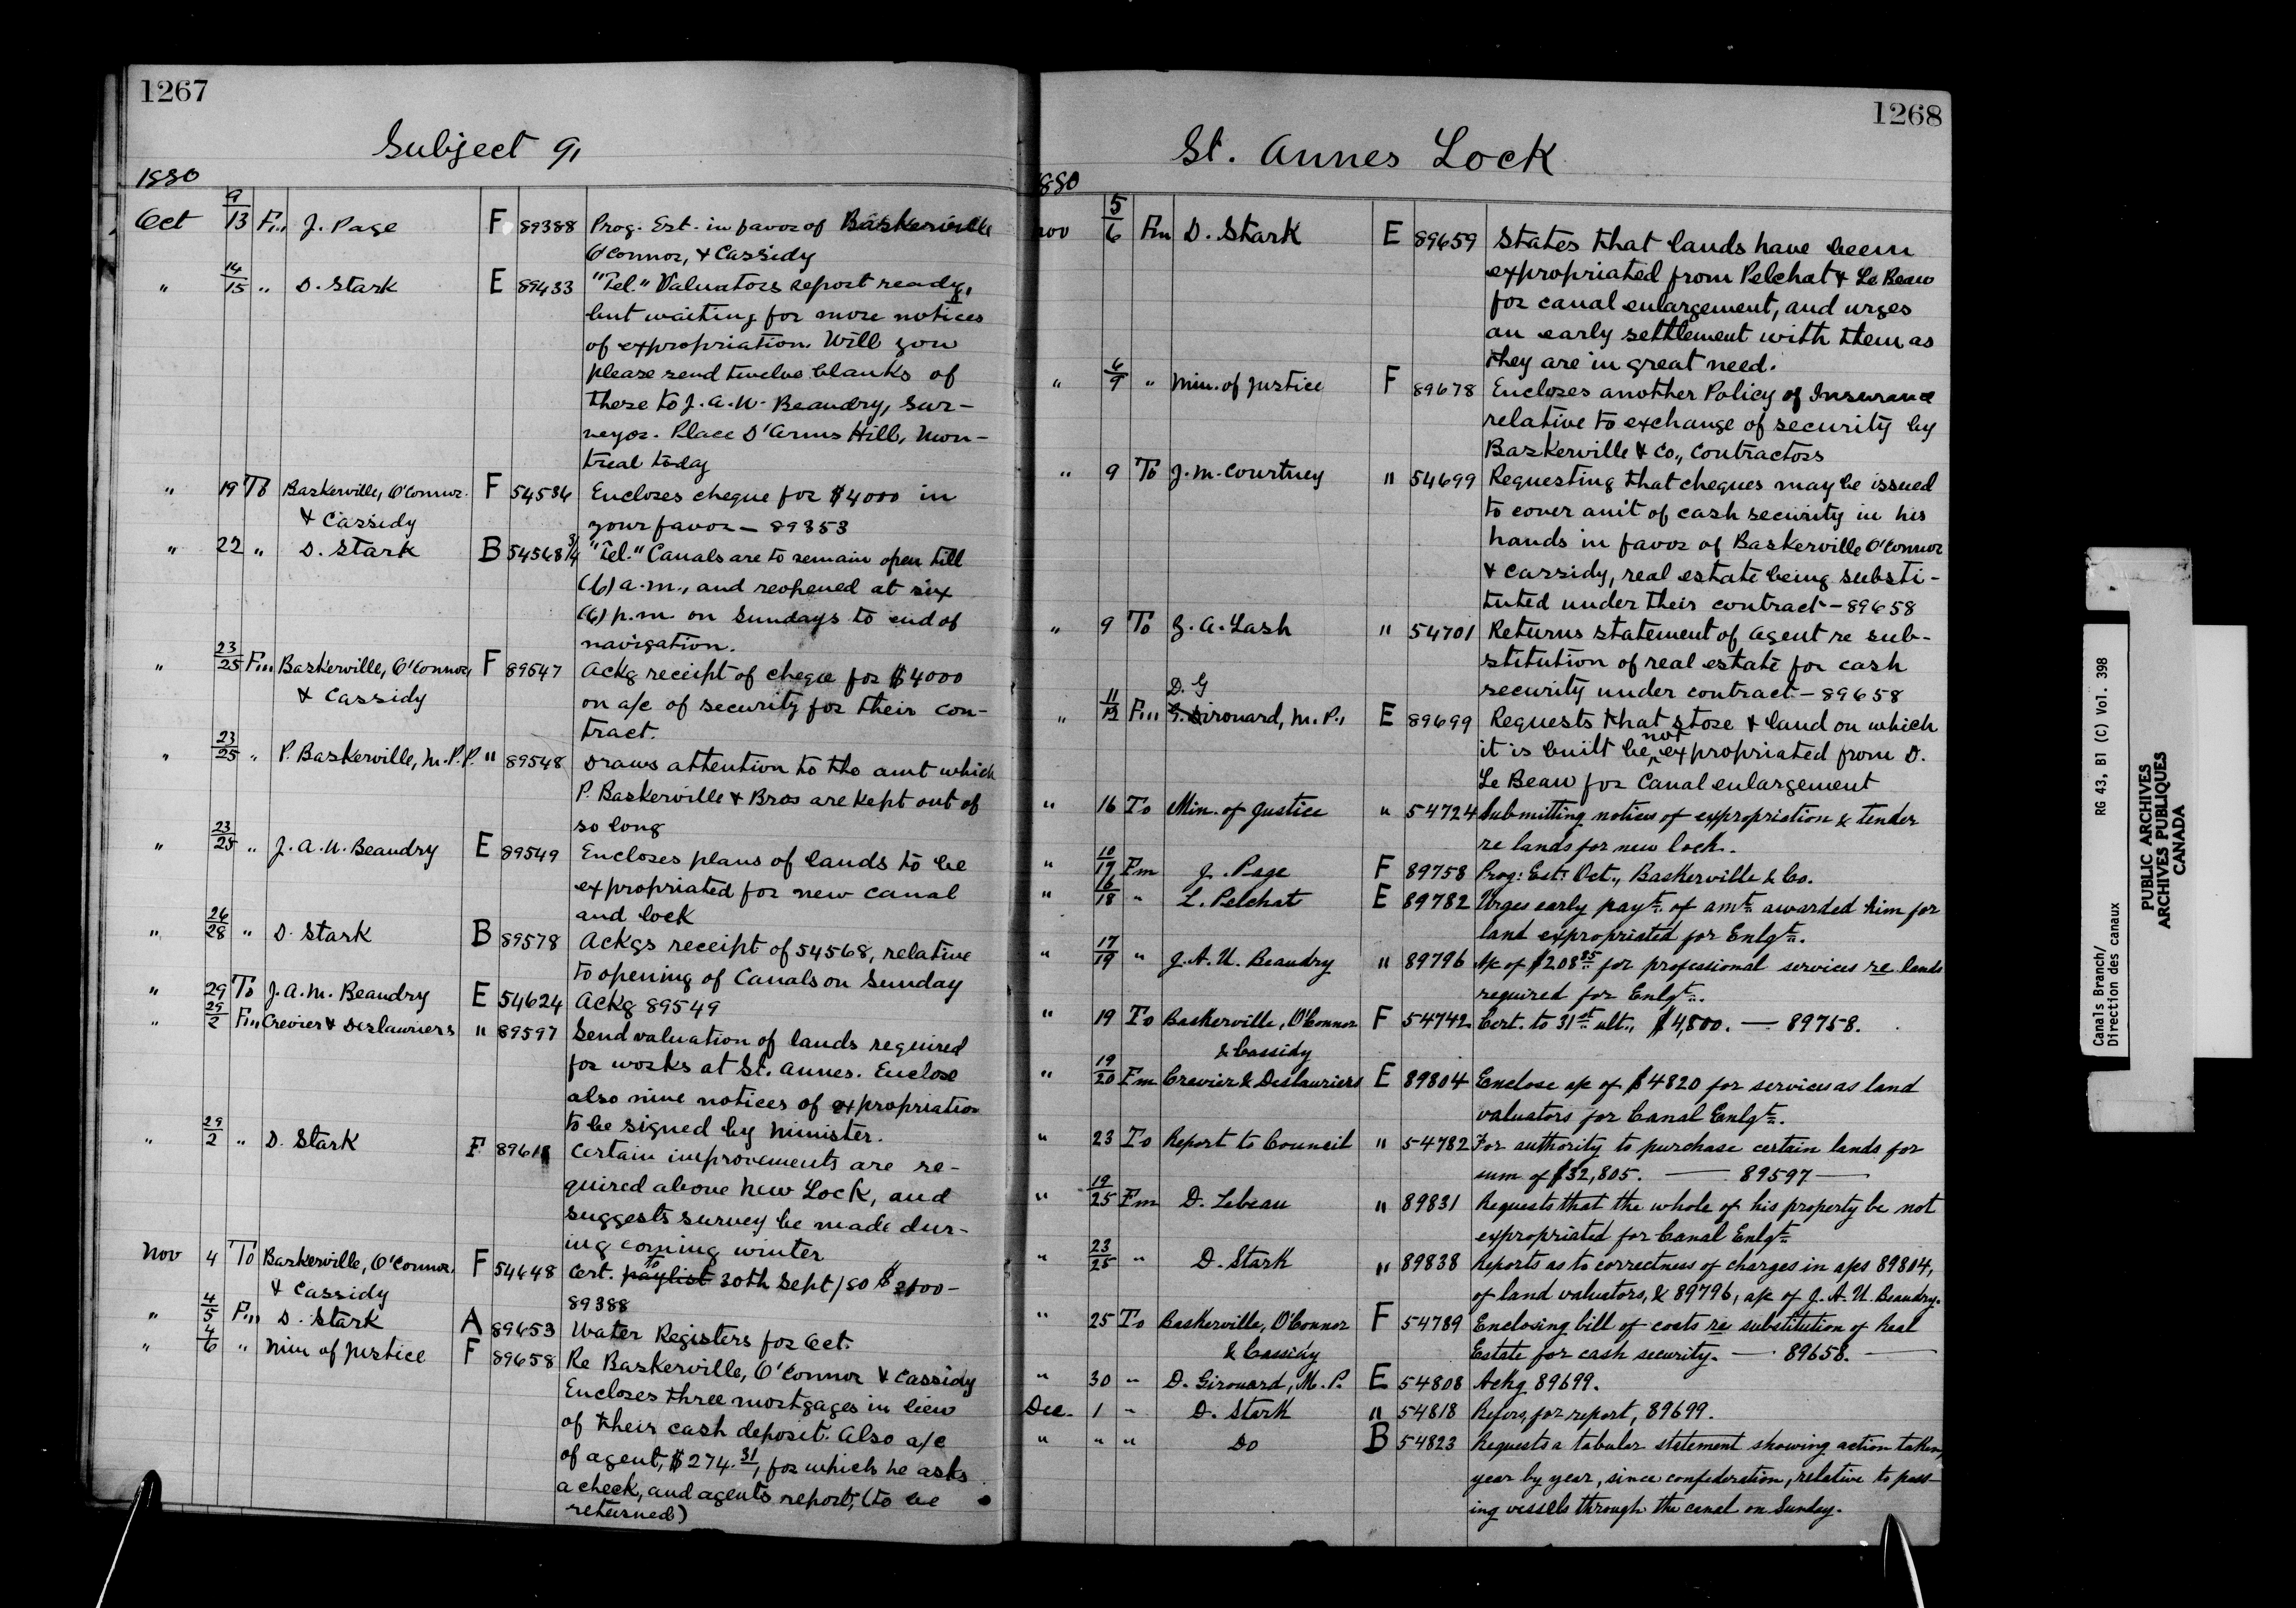 1267
Subject 9,
1880
Oct 9/13 Fm J. Page F 89388 Prog. Est. in favor of Baskerville
O'Connor, & Cassidy
" 14/15 " D. Stark E 89433 "Tel." Valuators report ready,
but waiting for more notices
of expropriation. Will you
please send twelve blanks of
these to J. A. U. Beaudry, Sur-
veyor. Place D'Arms Hill, Mon-
treal today
" 19 To Baskerville, O'Connor F 54534 Encloses cheque for $4000 in
& Cassidy your favor — 89353
" 22 " D. Stark B 54568 3/4 "Tel." Canals are to remain open till
(6) a.m., and reopened at six
(6) p.m. on Sundays to end of
navigation.
" 23/25 Fm Baskerville, O'Connor, F 89547 Ackg receipt of cheque for $4000
& Cassidy on a/c of security for their con-
tract.
" 23/25 " P. Baskerville, M.P.P. " 89548 Draws attention to the amt which
P. Baskerville & Bros are kept out of
so long
" 23/25 " J. A. U. Beaudry E 89549 Encloses plans of lands to be
expropriated for new canal
and lock
" 26/28 " D. Stark B 89578 Ackgs receipt of 54568, relative
to opening of Canals on Sunday
" 29 To J. A. M. Beaudry E 54624 Ackg 89549
" 29/2 Fm Crevier & Deslauriers " 89597 Send valuation of lands required
for works at St. Annes. Enclose
also nine notices of expropriation
to be signed by Minister.
" 29/2 " D. Stark F 89611 Certain improvements are re-
quired above New Lock, and
suggests survey be made dur-
ing coming winter
Nov 4 To Baskerville, O'Connor, F 54648 Cert. paylist to 30th Sept/80 $2100 —
& Cassidy 89388
" 4/5 Fm D. Stark A 89653 Water Registers for Oct.
" 4/6 " Min of Justice F 89658 Re Baskerville, O'Connor & Cassidy
Encloses three mortgages in lieu
of their cash deposit. Also a/c
of agent, $274.31, for which he asks
a check, and agents report, (to be
returned)
1268
St. Annes Lock
1880
Nov 5/6 Fm D. Stark E 89659 States that lands have been
expropriated from Pelchat & Le Beau
for canal enlargement, and urges
an early settlement with them as
they are in great need.
" 6/9 " Min. of Justice F 89678 Encloses another Policy of Insurance
relative to exchange of security by
Baskerville & Co., Contractors
" 9 To J. M. Courtney " 54699 Requesting that cheques may be issued
to cover amt of cash security in his
hands in favor of Baskerville O'Connor
& Cassidy, real estate being substi-
tuted under their contract — 89658
" 9 To Z. A. Lash " 54701 Returns statement of agent re sub-
stitution of real estate for cash
security under contract — 89658
" 11/12 Fm D. G Girouard, M.P., E 89699 Requests that store & land on which
it is built be not expropriated from D.
Le Beau for Canal enlargement
" 16 To Min. of Justice " 54724 Submitting notices of expropriation & tender
re lands for new lock.
" 10/17 Fm J. Page F 89758 Prog: Est: Oct., Baskerville & Co.
" 16/18 " L. Pelchat E 89782 Urges early payt. of amt. awarded him for
land expropriated for Enlgt.
" 17/19 " J. A. U. Beaudry " 89796 A/c of $208.85 for professional services re lands
required for Enlgt.
" 19 To Baskerville, O'Connor F 54742 Cert. to 31st ult., $4,800. — 89758.
& Cassidy
" 19/20 Fm Crevier & Deslauriers E 89804 Enclose a/c of $4820 for services as land
valuators for Canal Enlgt.
" 23 To Report to Council " 54782 For authority to purchase certain lands for
sum of $32,805. — 89597 —
" 19/25 Fm D. Lebeau " 89831 Requests that the whole of his property be not
expropriated for Canal Enlgt.
" 23/25 " D. Stark " 89838 Reports as to correctness of charges in a/cs 89804,
of land valuators, & 89796, a/c of J. A. U. Beaudry.
" 25 To Baskerville, O'Connor F 54789 Enclosing bill of costs re substitution of Real
& Cassidy Estate for cash security. — 89658. —
" 30 " D. Girouard, M.P. E 54808 Ackg 89699.
Dec. 1 " D. Stark " 54818 Refers, for report, 89699.
" " " Do B 54823 Requests a tabular statement showing action taken,
year by year, since confederation, relative to pass-
ing vessels through the canal on Sunday.
Canals Branch/ RG 43, B1 (C) Vol. 398
Direction des canaux
PUBLIC ARCHIVES
ARCHIVES PUBLIQUES
CANADA